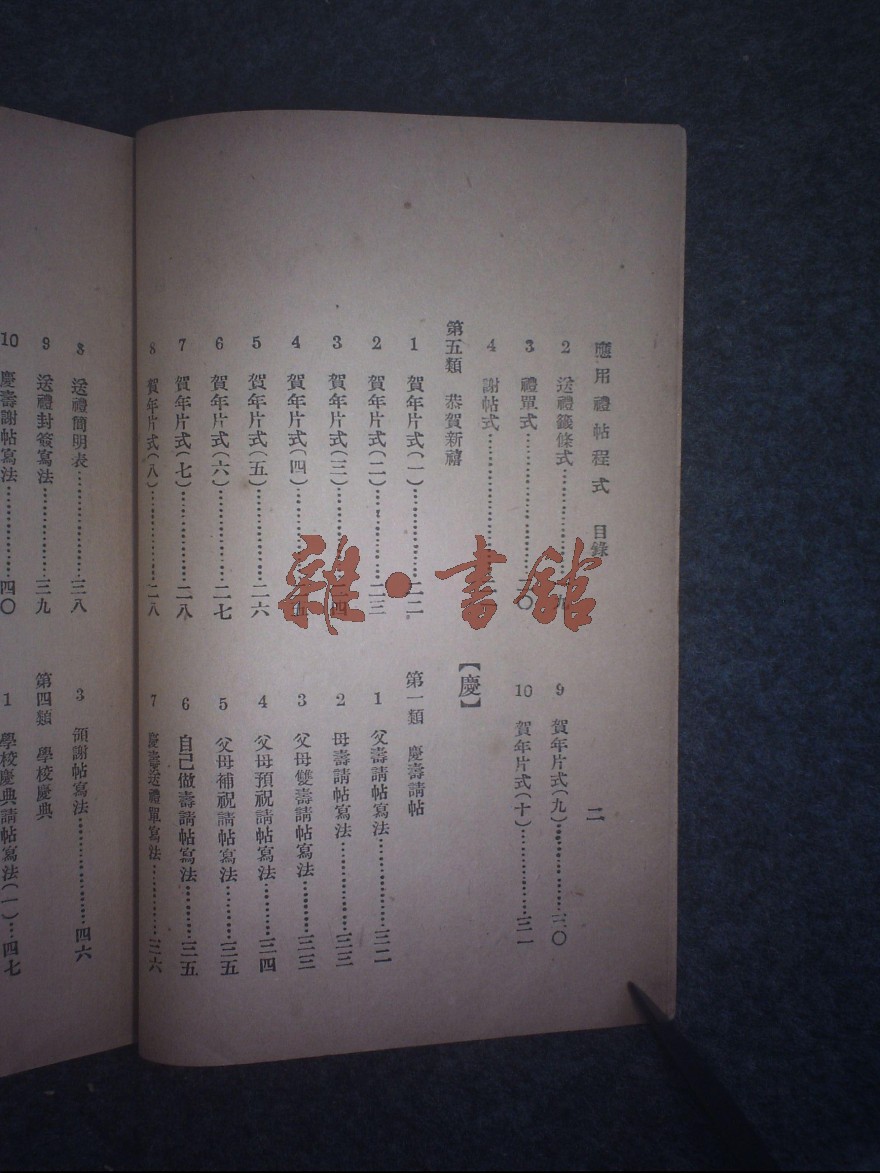 應用禮帖程式 目錄
二
2 送禮籤條式
3 禮單式
4 謝帖式
第五類 恭賀新禧
1 賀年片式(一)……二二
2 賀年片式(二)……二三
3 賀年片式(三)
4 賀年片式(四)
5 賀年片式(五)……二六
6 賀年片式(六)……二七
7 賀年片式(七)……二八
8 賀年片式(八)……二八
9 賀年片式(九)……三〇
10 賀年片式(十)……三一
【慶】
第一類 慶壽請帖
1 父壽請帖寫法……三二
2 母壽請帖寫法……三三
3 父母雙壽請帖寫法……三三
4 父母預祝請帖寫法……三四
5 父母補祝請帖寫法……三五
6 自己做壽請帖寫法……三五
7 慶壽送禮單寫法……三六
8 送禮簡明表……三八
9 送禮封簽寫法……三九
10 慶壽謝帖寫法……四〇
3 領謝帖寫法……四六
第四類 學校慶典
1 學校慶典請帖寫法(一)…四七
雜·書館